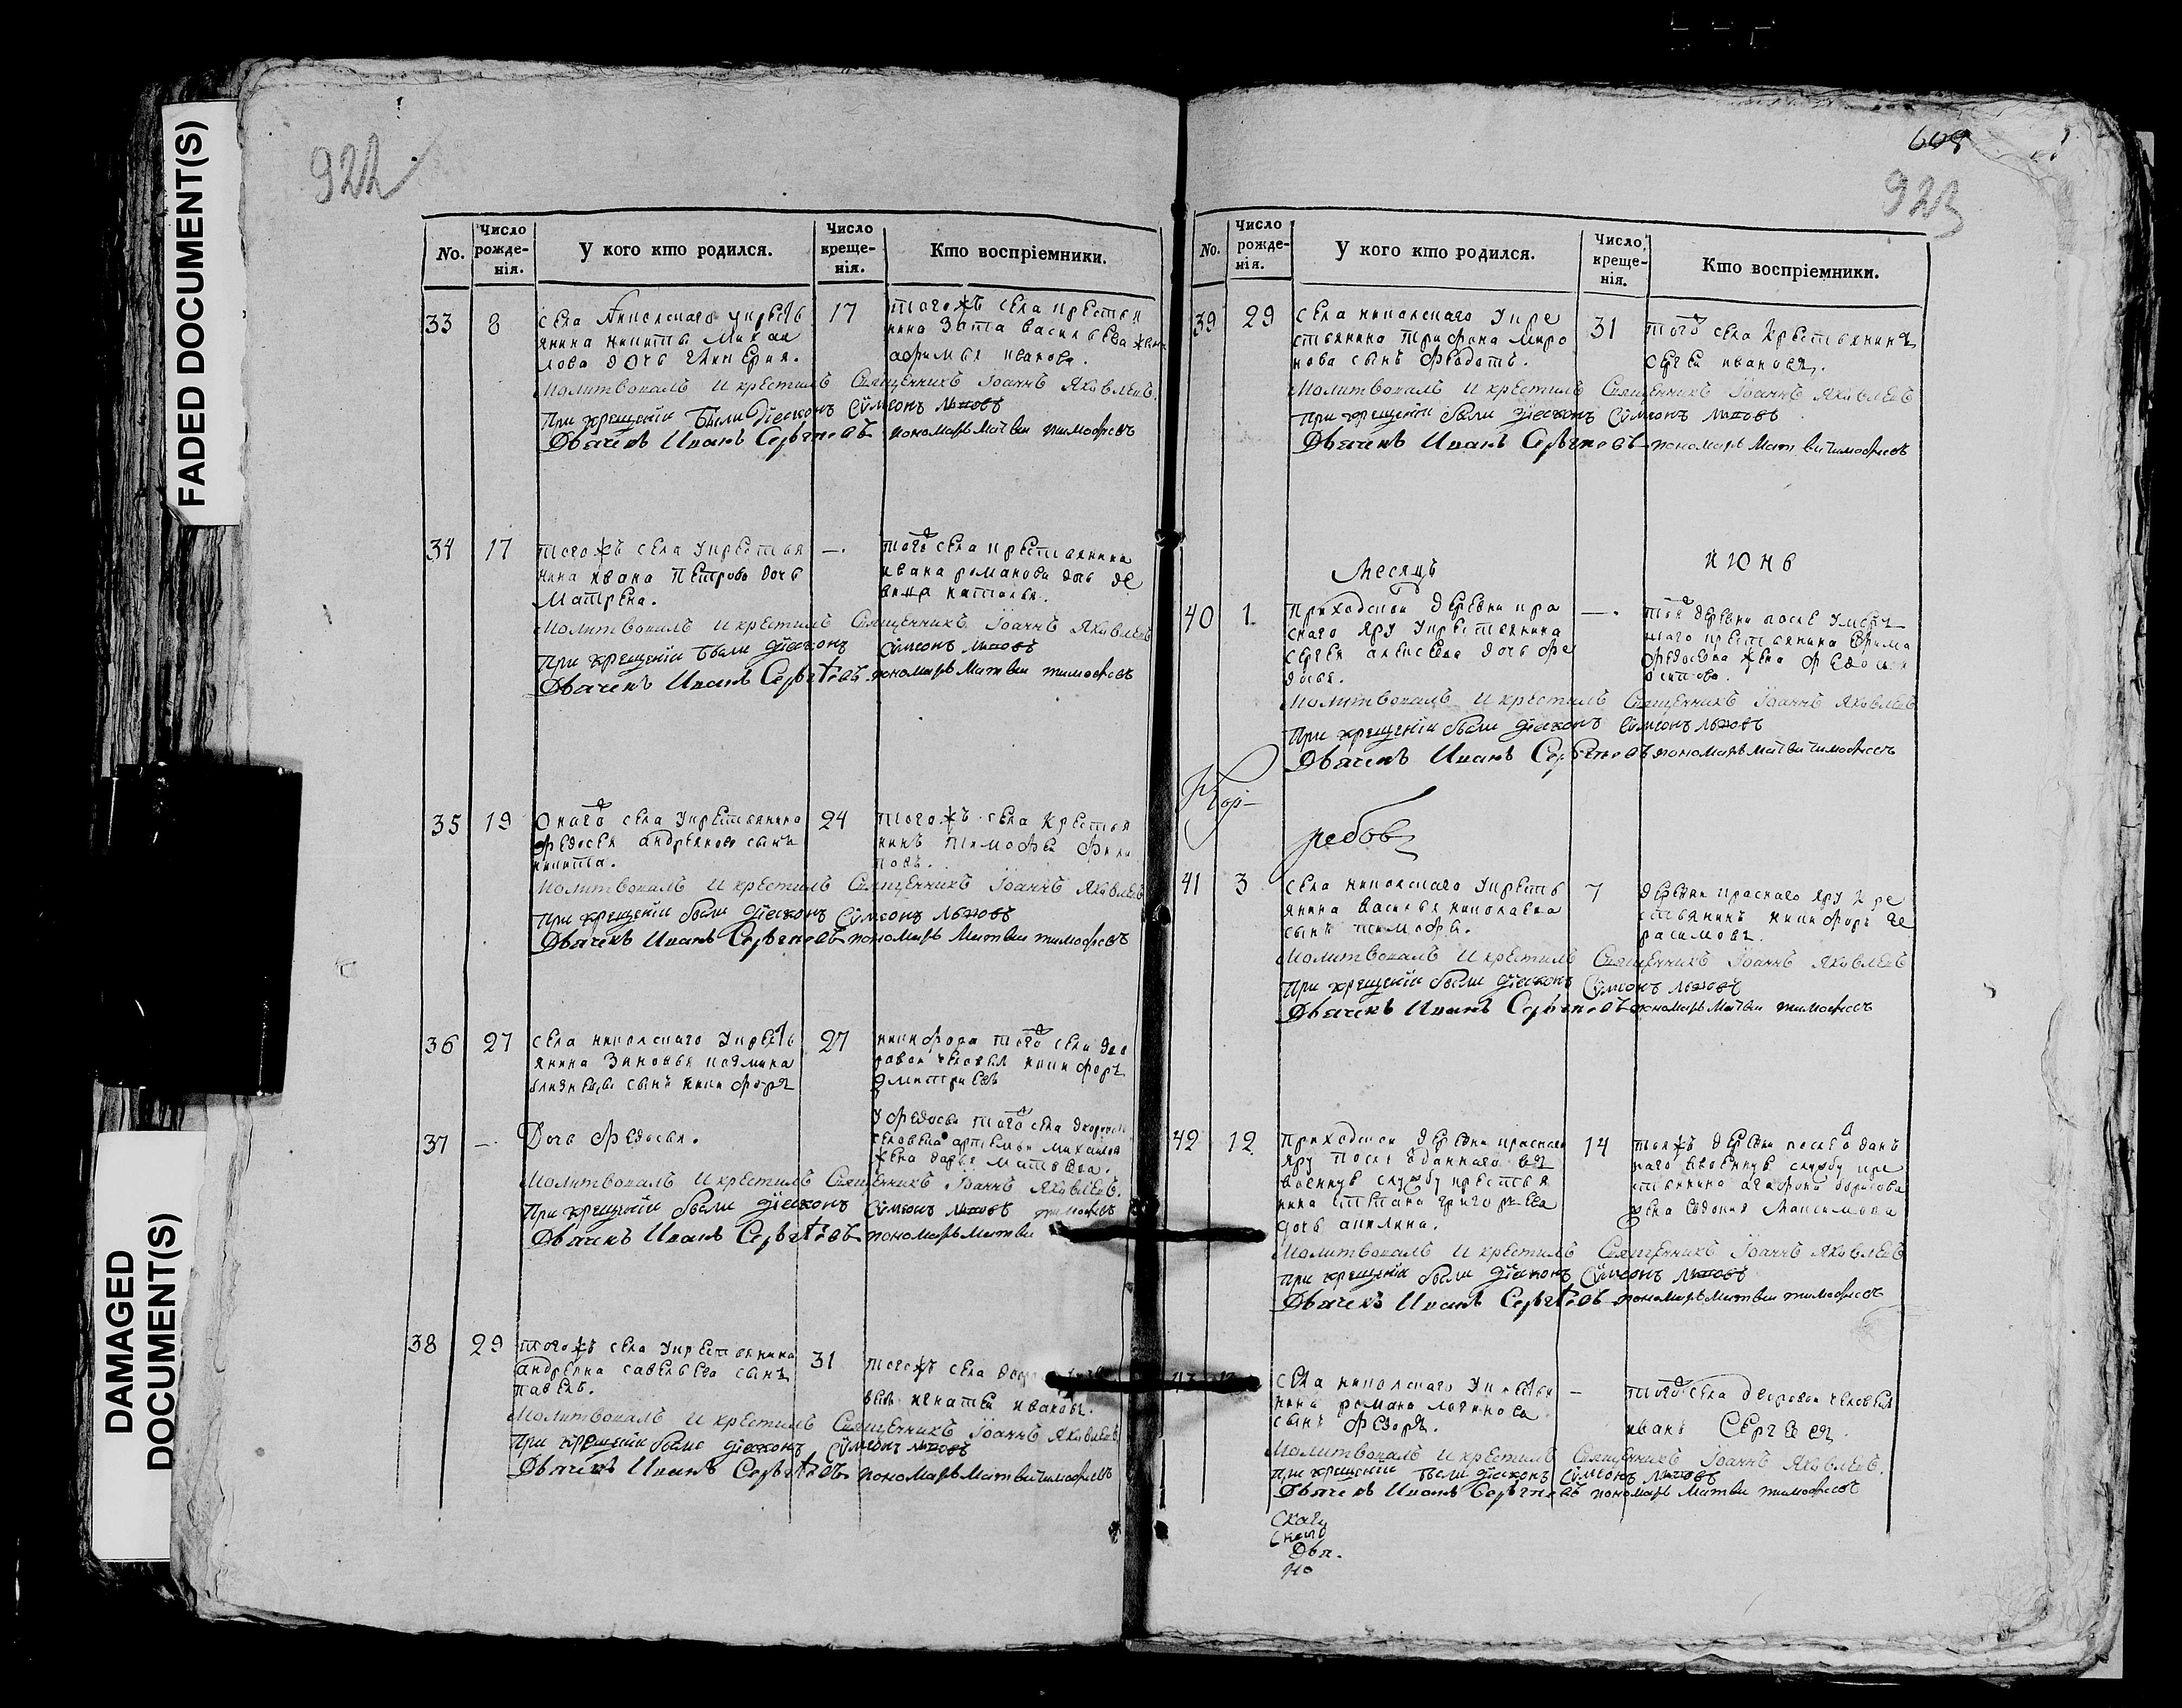 FADED DOCUMENT(S)
DAMAGED
DOCUMENT(S)
922
No.
Число
рожде-
нія.
У кого кто родился.
Число
креще-
нія.
Кто воспріемники.
33 8 села Никольскаго укрестъ
янина никиты Михаи
лова дочь гликерия.
17
тогожъ села крестья
нина Зота васильева жена
афимья иванова.
Молитвовалъ и крестилъ Священникъ Іоаннъ Яковлевъ.
При крещеніи были діаконъ Сѵмеонъ Львовъ
Дьячекъ Иванъ Сергѣевъ пономарь Матвѣи тимофѣевъ
34 17 тогожъ села укрестья
нина ивана Петрова дочь
Матрена.
—.
того села крестьянина
ивана романова дочь де
вица наталья.
Молитвовалъ и крестилъ Священникъ Іоаннъ Яковлевъ
При крещеніи были діаконъ Сѵмеонъ Львовъ
Дьячекъ Иванъ Сергѣевъ пономарь Матвѣи тимофѣевъ
35 19 Онаго села укрестьянина
федосея андреянова сынъ
никита.
24
тогожъ села крестья
нинъ тимофѣи фили
повъ.
Молитвовалъ и крестилъ Священникъ Іоаннъ Яковлевъ
При крещеніи были діаконъ Сѵмеонъ Львовъ
Дьячекъ Иванъ Сергѣевъ пономарь Матвѣи тимофѣевъ
36 27 села никольскаго укресть
янина Зиновья козмина
близнецы сынъ никифоръ
27
никифора того села дво
ровои человекъ никифоръ
дмитриевъ
37 —. Дочь федосья.
У федосьи того села дворового
человека артемья михаилова
жена дарья матвеева.
Молитвовалъ и крестилъ Священникъ Іоаннъ Яковлевъ.
При крещеніи были діаконъ Сѵмеонъ Львовъ тимофѣевъ
Дьячекъ Иванъ Сергѣевъ пономарь Матвѣи
38 29 тогожъ села укрестьянина
андреяна савельева сынъ
павелъ.
31
тогожъ села
игнатеи ивановъ.
Молитвовалъ и крестилъ Священникъ Іоаннъ Яковлевъ
При крещеніи были діаконъ Сѵмеонъ Львовъ
Дьячекъ Иванъ Сергѣевъ пономарь Матвѣи тимофѣевъ
609
923
No.
Число
рожде-
нія.
У кого кто родился.
Число
креще-
нія.
Кто воспріемники.
39 29 села никольскаго укре
стьянина Трифона миро
нова сынъ федотъ.
31
того села крестьянинъ
сергеи ивановъ.
Молитвовалъ и крестилъ Священникъ Іоаннъ Яковлевъ
При крещеніи были діаконъ Сѵмеонъ Львовъ
Дьячекъ Иванъ Сергѣевъ пономарь Матвѣи тимофѣевъ
Месяцъ июнь
40 1. Приходскои деревни кра
снаго яру укрестьянина
сергея алексеева дочь фе
досья.
—.
тоя деревни после умерш
наго крестьянина ефима
федосеева жена федосья
осипова.
Молитвовалъ и крестилъ Священникъ Іоаннъ Яковлевъ
При крещеніи были діаконъ Сѵмеонъ Львовъ
Дьячекъ Иванъ Сергѣевъ пономарь Матвѣи тимофѣевъ
41 3 села никольскаго укресть
янина василья николаева
сынъ тимофѣи.
7
деревни краснаго яру кре
стьянинъ никифоръ ге
расимовъ.
Молитвовалъ и крестилъ Священникъ Іоаннъ Яковлевъ
При крещеніи были діаконъ Сѵмеонъ Львовъ
Дьячекъ Иванъ Сергѣевъ пономарь Матвѣи тимофѣевъ
42 12 Приходскои деревни краснаго
яру после отданнаго въ
военную службу крестья
нина степана григорьева
дочь акилина.
14
тояжъ деревни после одан
наго ввоенную службу кре
стьянина агафона борисова
жена евдокия Максимова
Молитвовалъ и крестилъ Священникъ Іоаннъ Яковлевъ
При крещеніи были діаконъ Сѵмеонъ Львовъ
Дьячекъ Иванъ Сергѣевъ пономарь Матвѣи тимофѣевъ
43 села никольскаго укрестья
нина романа логинова
сынъ федоръ.
—
того села дворовои человекъ
иванъ Сергеевъ.
Молитвовалъ и крестилъ Священникъ Іоаннъ Яковлевъ.
При крещеніи были діаконъ Сѵмеонъ Львовъ
Дьячекъ Иванъ Сергѣевъ пономарь Матвѣи тимофѣевъ